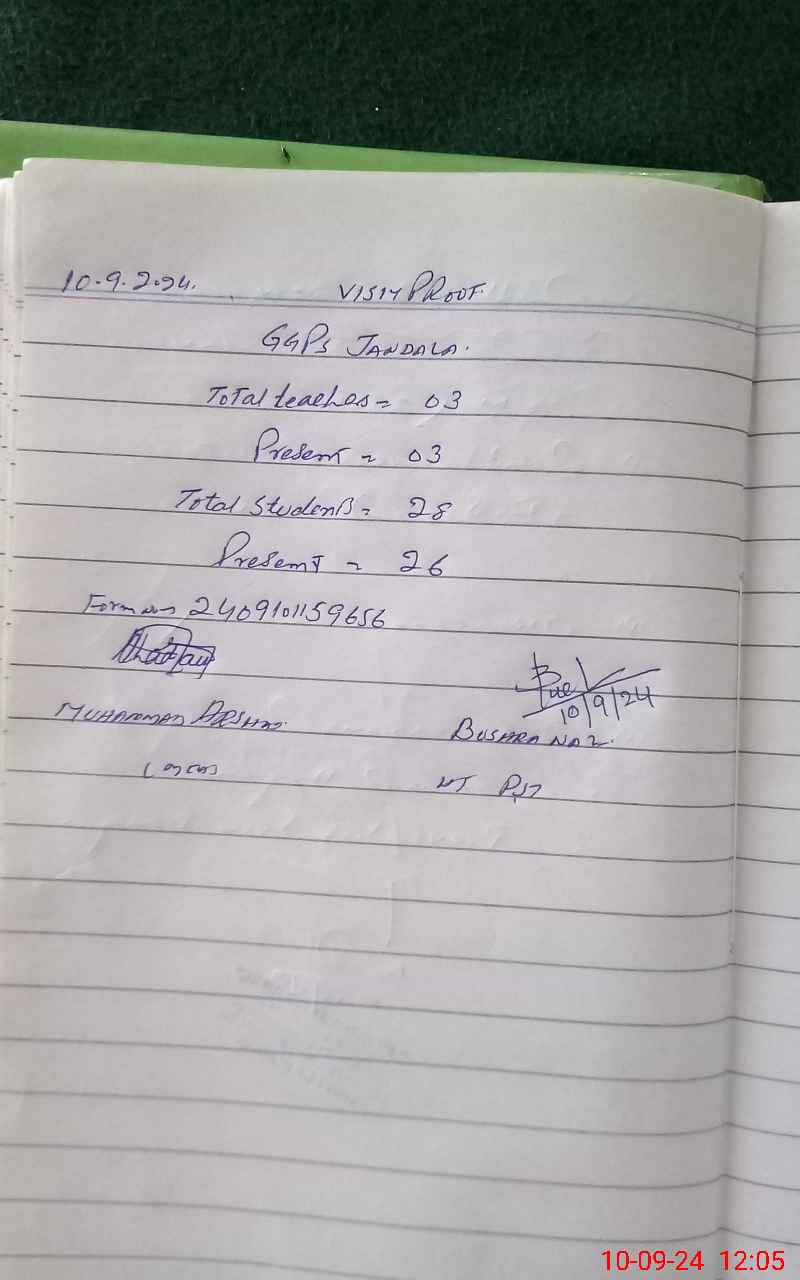 10.9.2024. VISIT PROOF.
GGPS JANDALA.
Total teaches = 03
Present = 03
Total Students = 28
Present = 26
Form no 2409101159656
10/9/24
MUHAMMAD ARSHAD.
BUSHRA NAZ.
PST
10-09-24 12:05